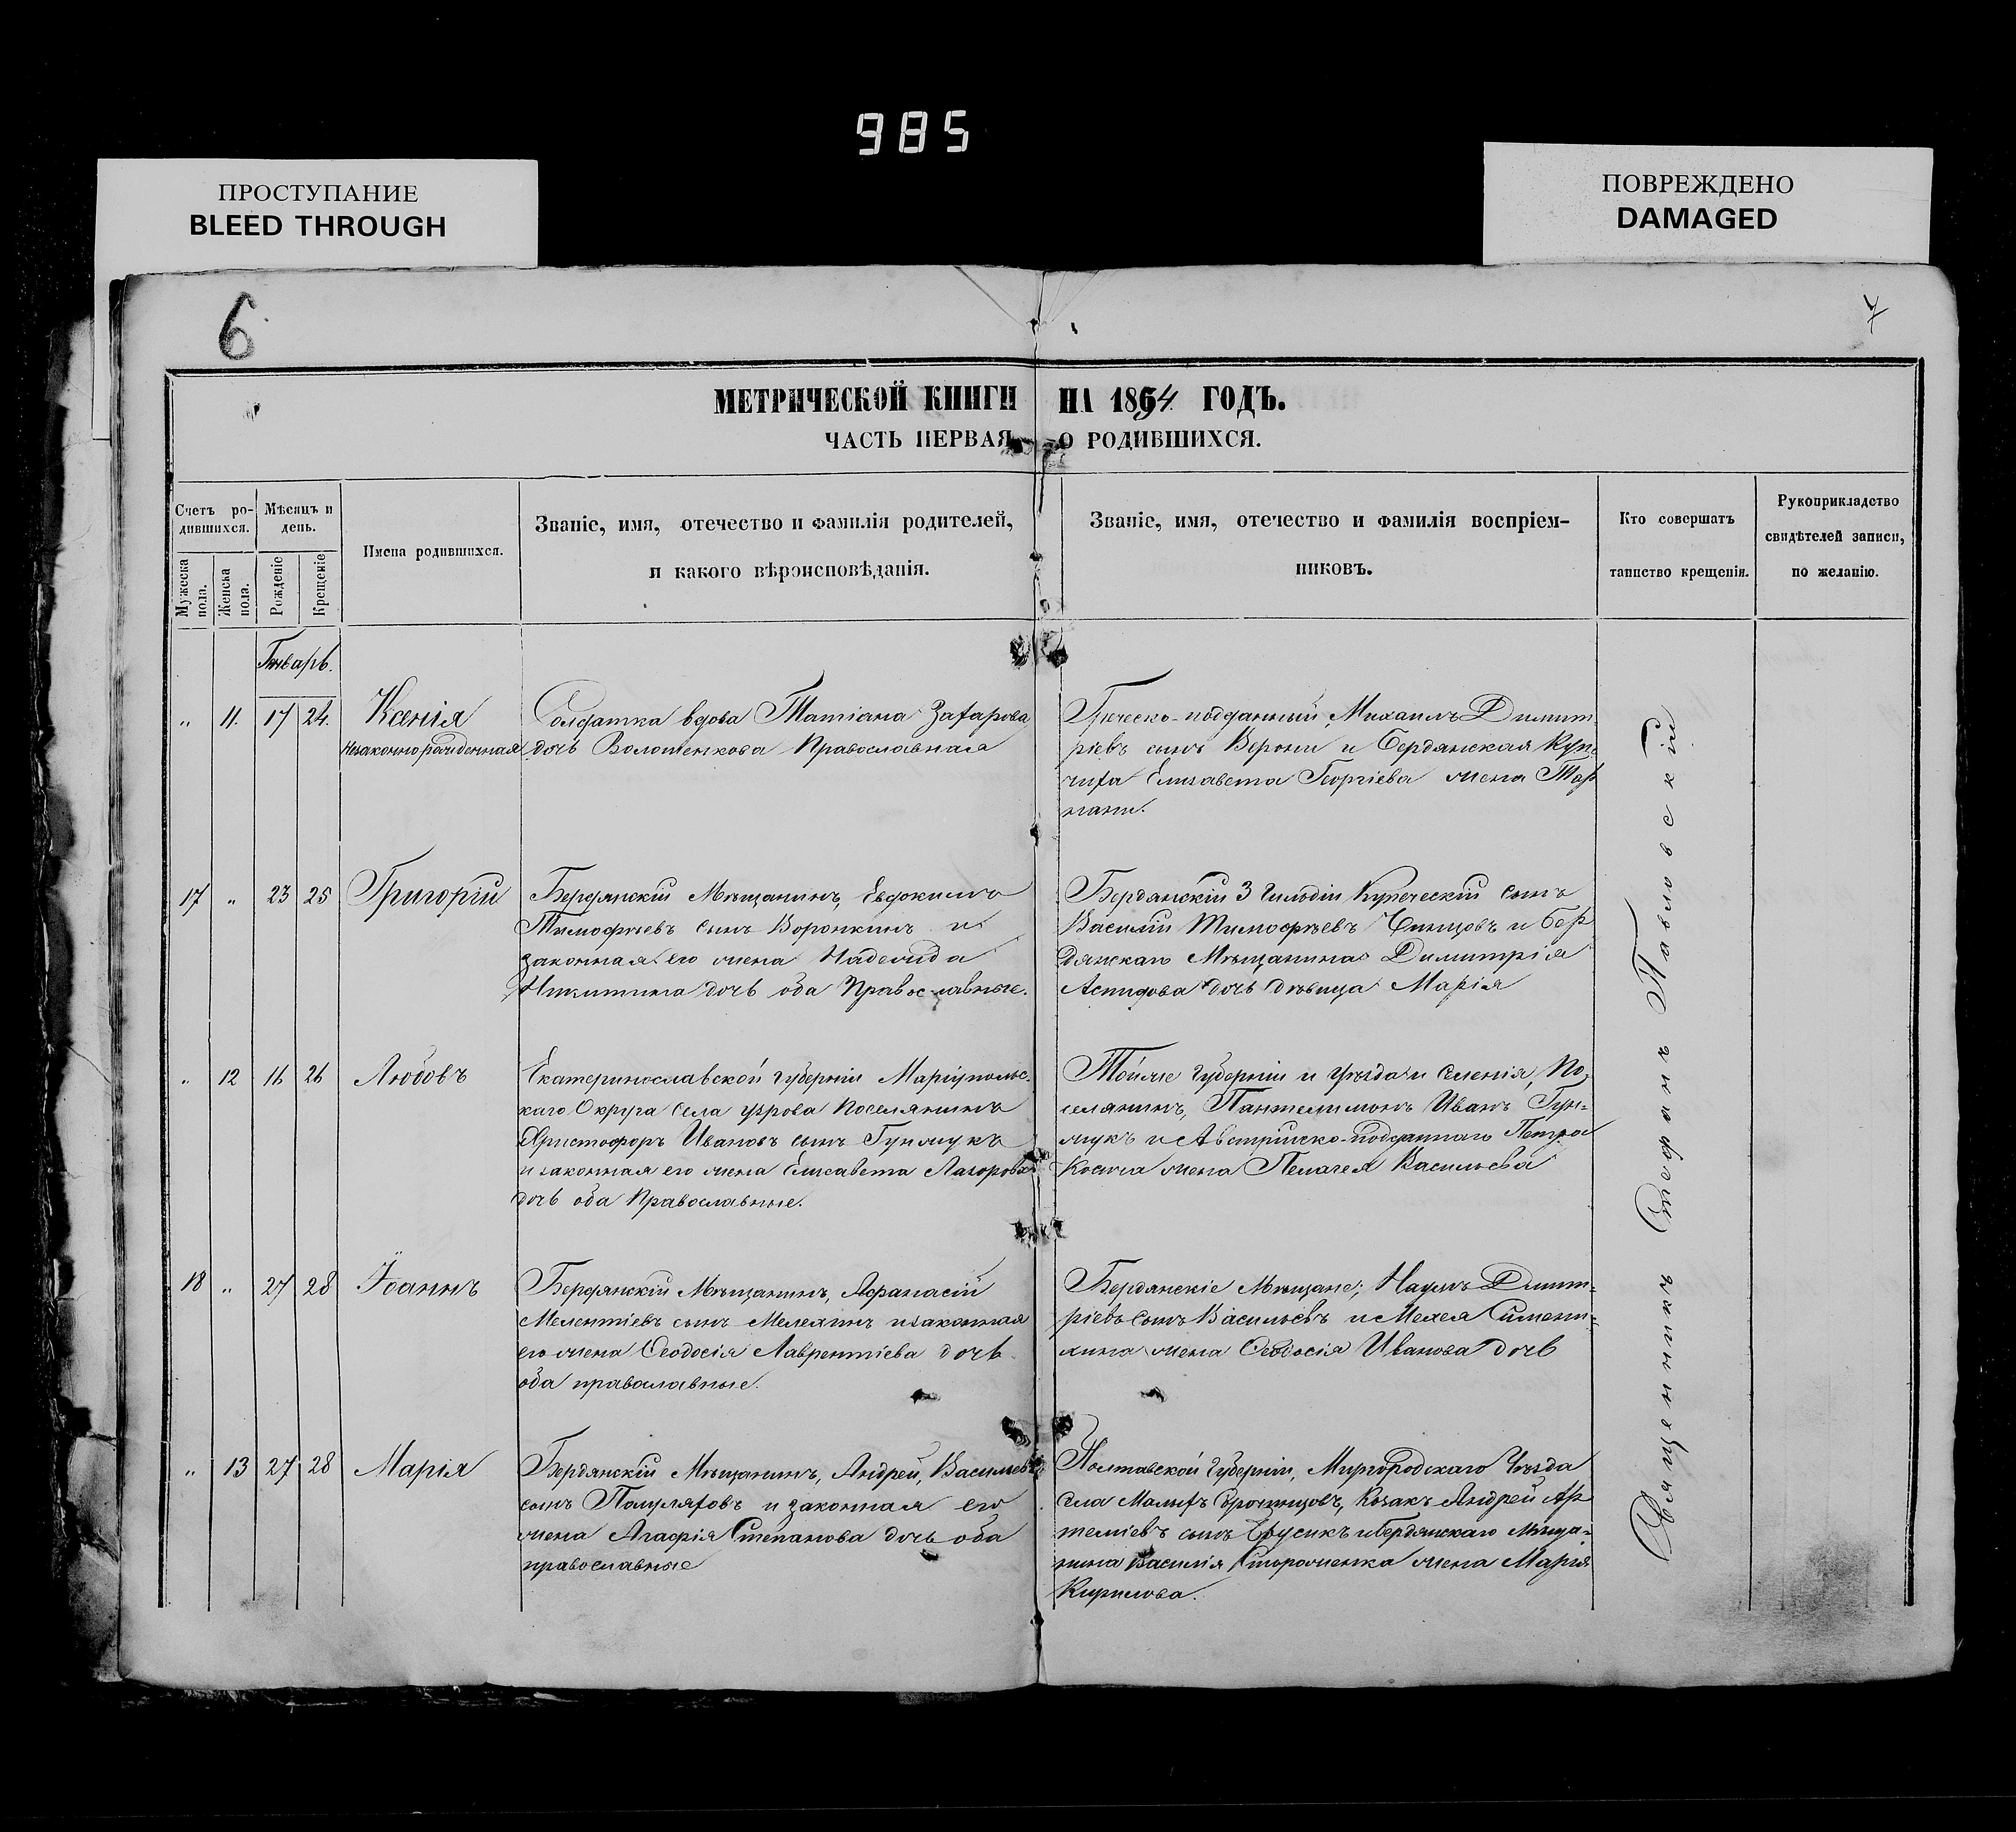 985
ПРОСТУПАНИЕ
BLEED THROUGH
ПОВРЕЖДЕНО
DAMAGED
6
7
МЕТРИЧЕСКОЙ КНИГИ НА 1864 ГОДЪ.
ЧАСТЬ ПЕРВАЯ О РОДИВШИХСЯ.
Счетъ ро-
дившихся.
Мужеска пола.
Женска пола.
Мѣсяцъ и
день.
Рожденіе
Крещеніе
Имена родившихся.
Званіе, имя, отечество и фамилія родителей,
и какого вѣроисповѣданія.
Званіе, имя, отечество и фамилія воспріем-
никовъ.
Кто совершатъ
таинство крещенія.
Рукоприкладство
свидѣтелей записи,
по желанію.
Январь.
„ 11. 17 24. Ксенія
незаконнорожденная
Солдатка вдова Татіана Захарова
дочь Волошенкова Православная
Греческо-подданный, Михаилъ Димит-
ріевъ сынъ Верони и Бердянская Куп-
чиха Елизавета Георгіева жена
17 „ 23 25 Григорій
Бердянскій Мѣщанинъ, Евдокимъ
Тимофѣевъ сынъ Воронкинъ и
законная его жена Надежда
Никитина дочь оба Православные.
Бердянскій 3 Гильдіи Купеческій сынъ
Василій Тимофѣевъ и Бер
дянскаго Мѣщанина Димитрія
Аспидова дочь дѣвица Марія
„ 12 16 26 Любовь
Екатеринославской Губерніи Маріупольс-
каго Округа села Поселянинъ
Христофоръ Ивановъ сынъ
и законная его жена Елисавета Лазорова
дочь оба Православные.
Тойже Губерніи и Уѣзда и селенія, По-
селянинъ, Пантелимонъ Иванъ
и Австрійско-подданнаго Петра
жена Пелагея Васильева
18 „ 27 28 Іоаннъ
Бердянскій Мѣщанинъ, Афанасій
Мелентіевъ сынъ Мелехинъ и законная
его жена Ѳеодосія Лаврентіева дочь
оба православные.
Бердянскіе Мѣщане; Наумъ Димит-
ріевъ сынъ Васильевъ и
жена Ѳеодосія Иванова дочь
„ 13 27 28 Марія
Бердянскій Мѣщанинъ, Андрей, Васильевъ
сынъ Полуляховъ и законная его
жена Агафія Степанова дочь оба
православные
Полтавской Губерніи, Миргородскаго Уѣзда
села Малыхъ Сорочинцовъ, Козакъ Андрей Ар
теміевъ сынъ и Бердянскаго Мѣща-
нина Василія Стороженка жена Марія
Кирилова.
Священникъ Стефанъ Павловскій